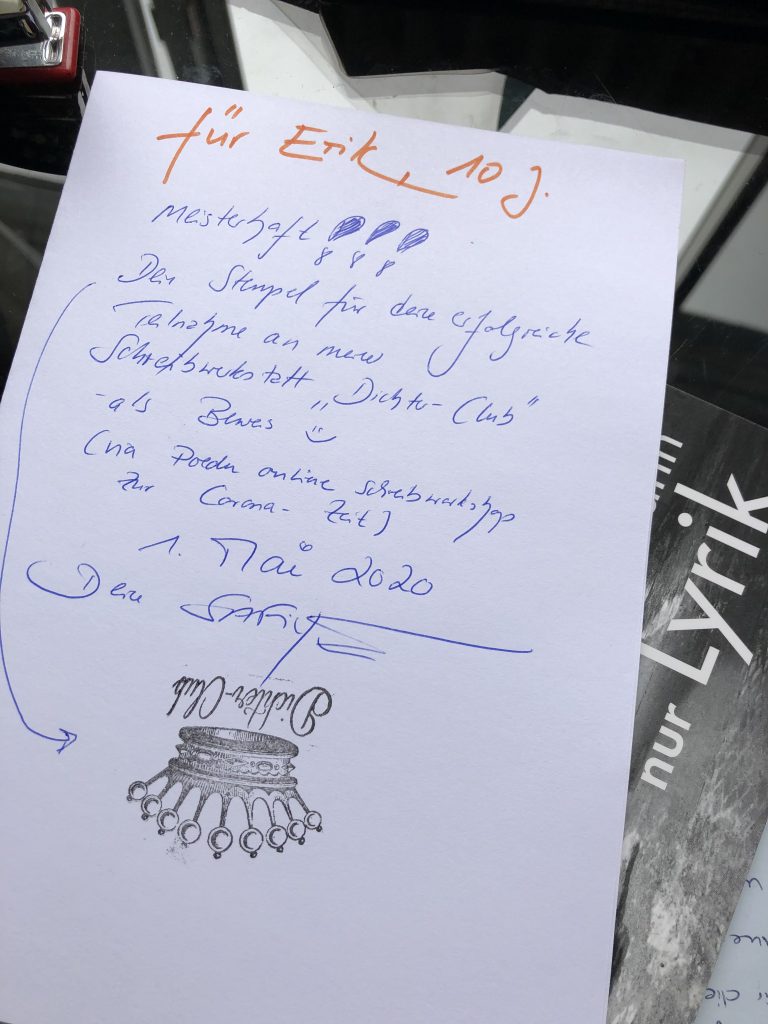 für Erik, 10 J.
Meisterhaft !!!
Dein Stempel für deine erfolgreiche
Teilnahme an meiner
Schreibwerkstatt „Dichter-Club“
- als Beweis
(via online Schreibworkshop
zur Corona-Zeit)
1. Mai 2020
Dein SAFIYE
Dichter-Club
nur Lyrik